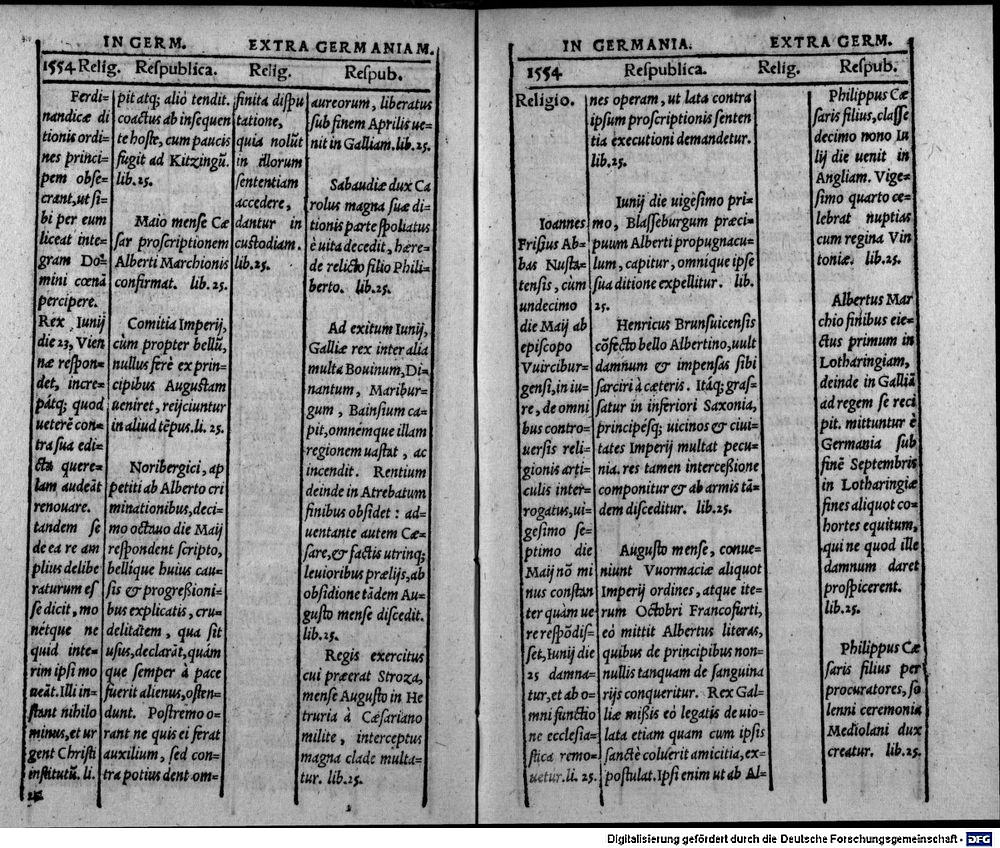 IN GERM.
EXTRA GERMANIAM.
1554 Relig.
Respublica.
Relig.
Respub.
Ferdi=
nandicæ di
tionis ordi=
nes princi=
pem obse=
crant, ut si=
bi per eum
liceat inte=
gram Do=
mini cœnā
percipere.
Rex Iunij
die 23, Vien
næ respon=
det, incre=
pátq; quod
ueterē con=
tra sua edi=
cta quere=
lam audeāt
renouare.
tandem se
de ea re am
plius delibe
raturum es
se dicit, mo
nētque ne
quid inte=
rim ipsi mo
ueāt. Illi in=
stant nihilo
minus, et ur
gent Christi
institutū. li.
25.
pit atq; aliò tendit.
coactus ab insequen
te hoste, cum paucis
fugit ad Kitzingū.
lib. 25.
Maio mense Cæ
sar proscriptionem
Alberti Marchionis
confirmat. lib. 25.
Comitia Imperij,
cùm propter bellū,
nullus ferè ex prin=
cipibus Augustam
ueniret, reijciuntur
in aliud tēpus. li. 25.
Noribergici, ap
petiti ab Alberto cri
minationibus, deci=
mo octauo die Maij
respondent scripto,
bellique huius cau=
sis & progressioni=
bus explicatis, cru=
delitātem, qua sit
usus, declarāt, quàm
que semper à pace
fuerit alienus, osten=
dunt. Postremo o=
rant ne quis ei ferat
auxilium, sed con=
tra potius dent om=
finita dispu
tatione,
quia nolūt
in illorum
sententiam
accedere,
dantur in
custodiam.
lib. 25.
aureorum, liberatus
sub finem Aprilis ue=
nit in Galliam. lib. 25.
Sabaudiæ dux Ca
rolus magna suæ di=
tionis parte spoliatus
è uita decedit, hære=
de relicto filio Phili=
berto. lib. 25.
Ad exitum Iunij,
Galliæ rex inter alia
multa Bouinum, Di=
nantum, Maribur=
gum, Bainsium ca=
pit, omnemque illam
regionem uastat, ac
incendit. Rentium
deinde in Atrebatum
finibus obsidet: ad=
uentante autem Cæ=
sare, & factis utrinq;
leuioribus prælijs, ab
obsidione tādem Au=
gusto mense discedit.
lib. 25.
Regis exercitus
cui præerat Stroza,
mense Augusto in He
truria à Cæsariano
milite, interceptus
magna clade multa=
tur. lib. 25.
2
IN GERMANIA.
EXTRA GERM.
1554
Respublica.
Relig.
Respub.
Religio.
Ioannes
Frisius Ab=
bas Nusta=
tensis, cùm
undecimo
die Maij ab
episcopo
Vuircibur=
gensi, in iu=
re, de omni
bus contro=
uersis reli=
gionis arti=
culis inter=
rogatus, ui=
gesimo se=
ptimo die
Maij nō mi
nus constan
ter quàm ue
re respōdis=
set, Iunij die
25 damna=
tur, et ab o=
mni functio
ne ecclesia=
stica remo=
uetur. li. 25.
nes operam, ut lata contra
ipsum proscriptionis senten
tia executioni demandetur.
lib. 25.
Iunij die uigesimo pri=
mo, Blasseburgum præci=
puum Alberti propugnacu=
lum, capitur, omnique ipse
sua ditione expellitur. lib.
25.
Henricus Brunsuicensis
cōfecto bello Albertino, uult
damnum & impensas sibi
sarciri à cæteris. Itáq; gras=
satur in inferiori Saxonia,
principésq; uicinos & ciui=
tates Imperij multat pecu=
nia. res tamen intercessione
componitur & ab armis tā=
dem disceditur. lib. 25.
Augusto mense, conue=
niunt Vuormaciæ aliquot
Imperij ordines, atque ite=
rum Octobri Francofurti,
eò mittit Albertus literas,
quibus de principibus non=
nullis tanquam de sanguina
rijs conqueritur. Rex Gal=
liæ missis eò legatis de uio=
lata etiam quam cum ipsis
sanctè coluerit amicitia, ex=
postulat. Ipsi enim ut ab Al=
Philippus Cæ
saris filius, classe
decimo nono Iu
lij die uenit in
Angliam. Vige=
simo quarto ce=
lebrat nuptias
cum regina Vin
toniæ. lib. 25.
Albertus Mar
chio finibus eie=
ctus primum in
Lotharingiam,
deinde in Galliā
ad regem se reci
pit. mittuntur è
Germania sub
finē Septembris
in Lotharingiæ
fines aliquot co=
hortes equitum,
qui ne quod ille
damnum daret
prospicerent.
lib. 25.
Philippus Cæ
saris filius per
procuratores, so
lenni ceremonia
Mediolani dux
creatur. lib. 25.
Digitalisierung gefördert durch die Deutsche Forschungsgemeinschaft - DFG